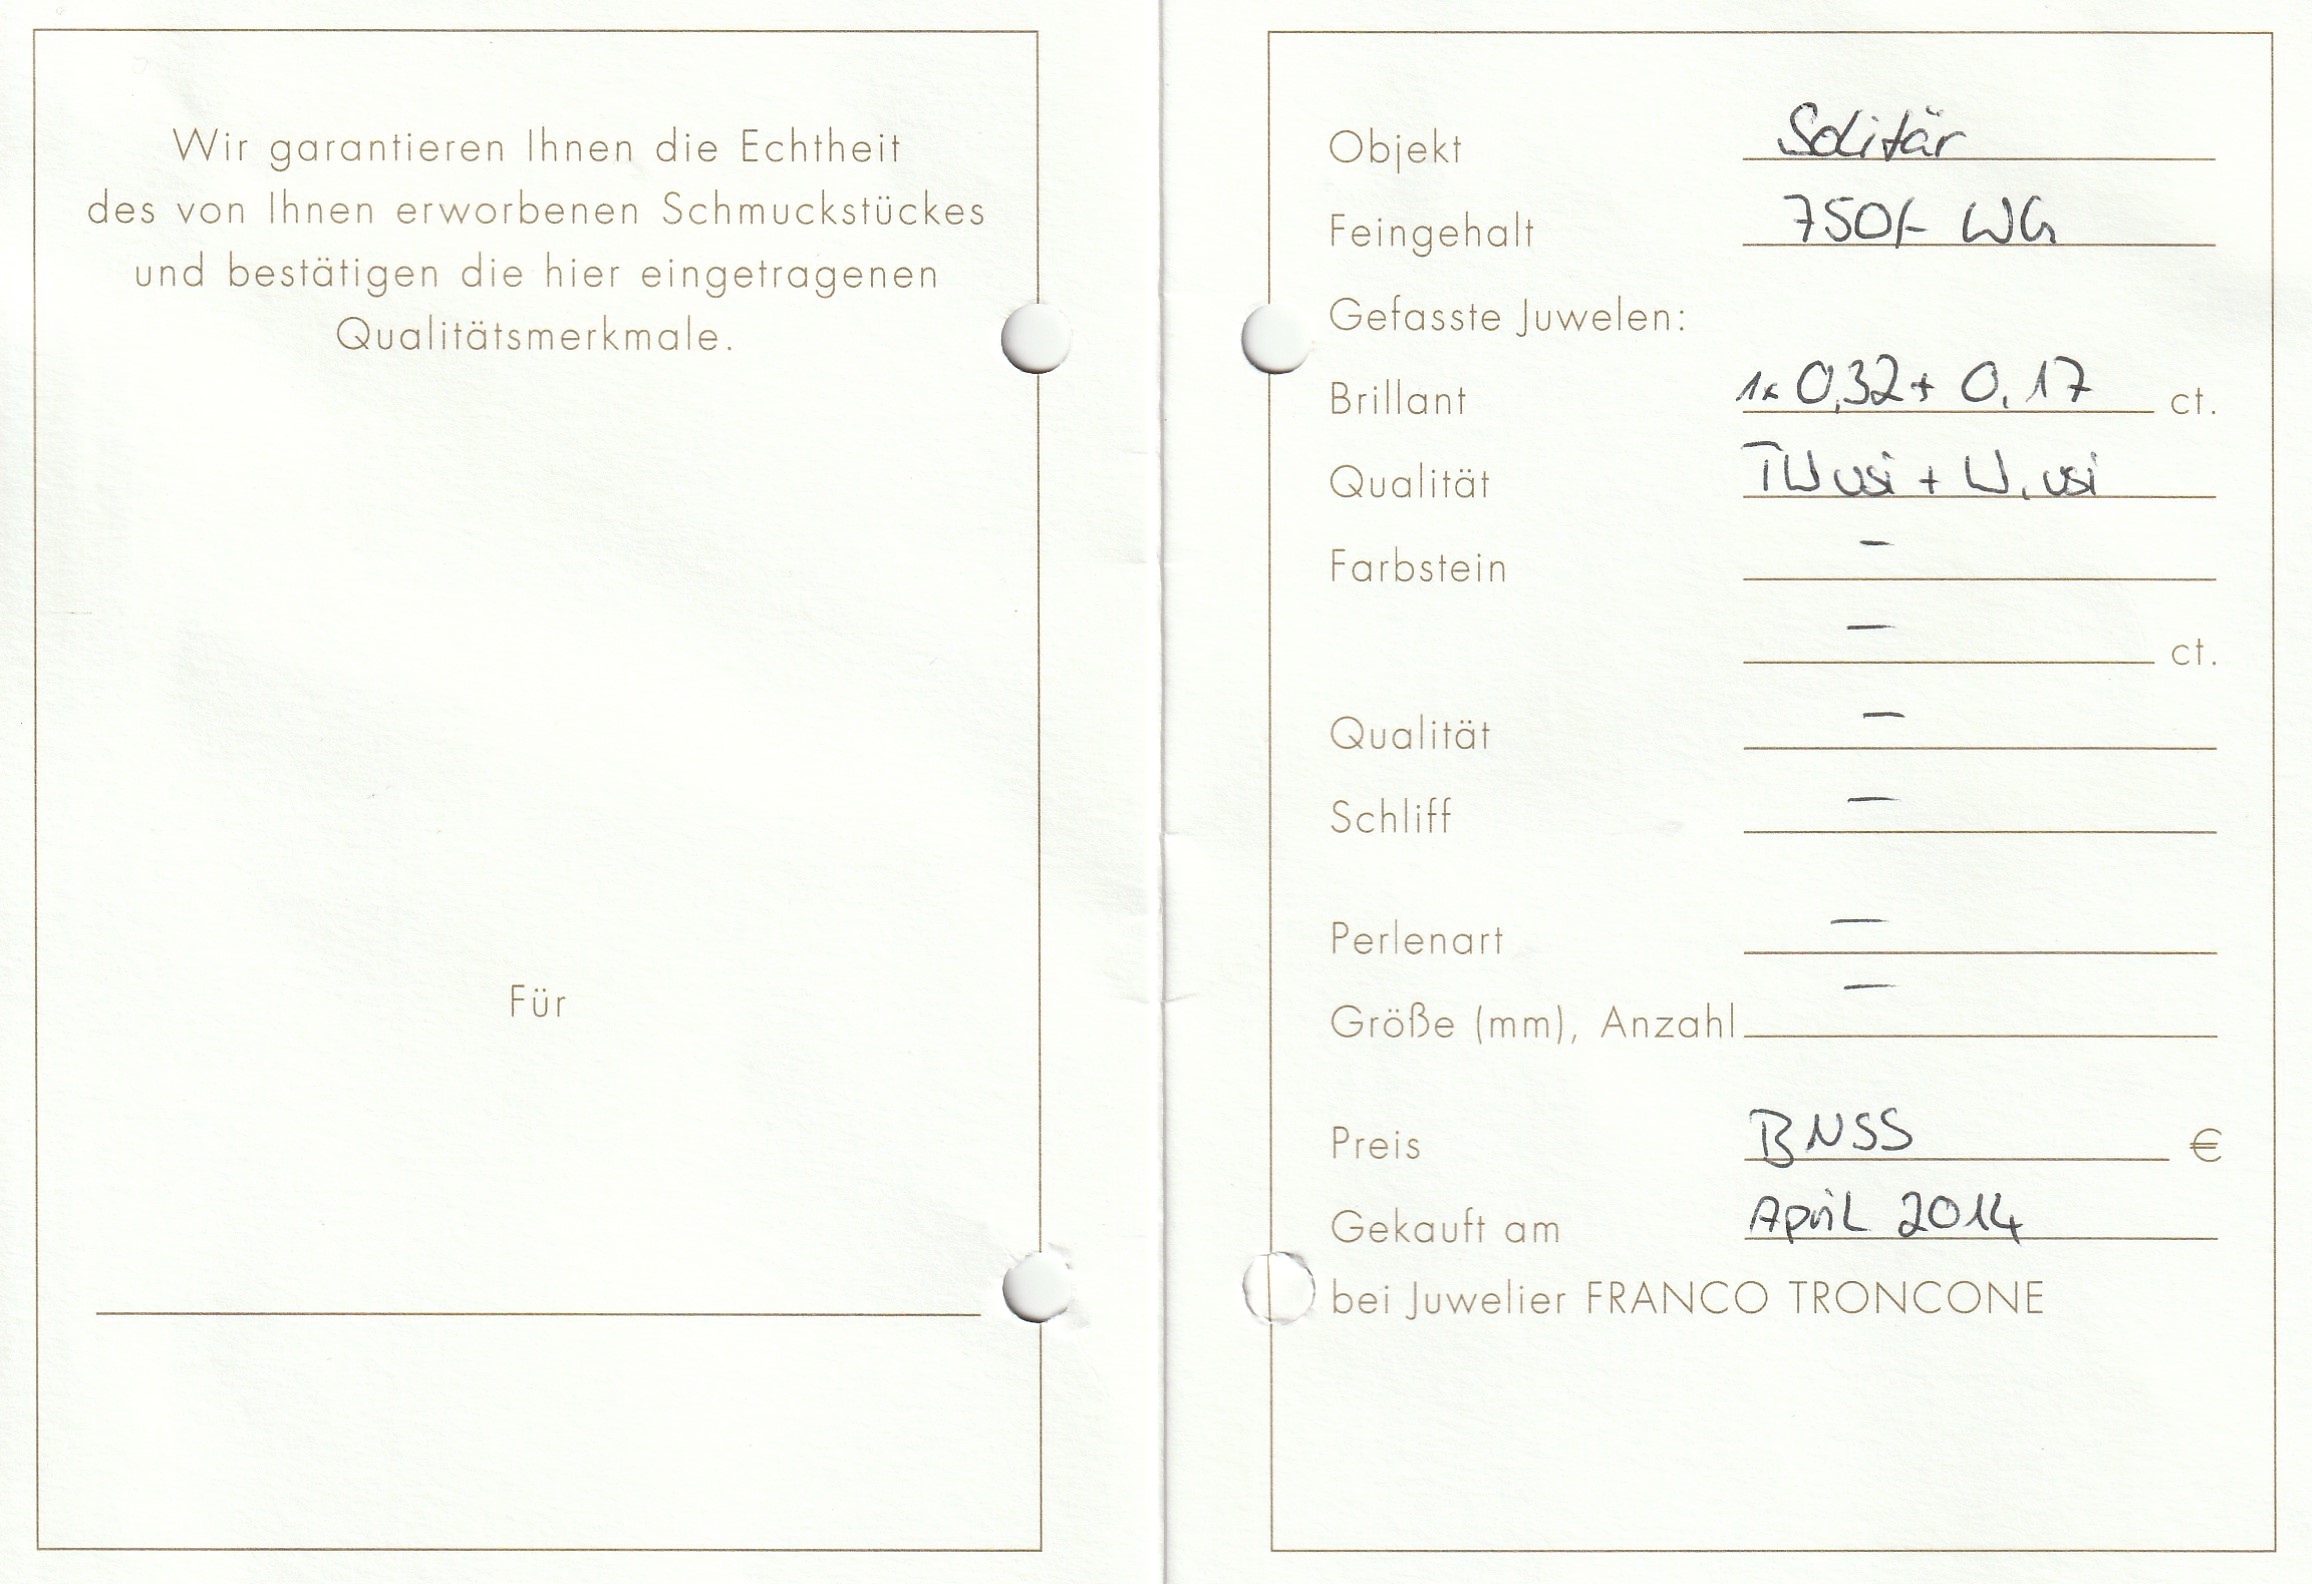 Wir garantieren Ihnen die Echtheit
des von Ihnen erworbenen Schmuckstückes
und bestätigen die hier eingetragenen
Qualitätsmerkmale.
Für
Objekt Solitär
Feingehalt 750/- WG
Gefasste Juwelen:
Brillant 1x 0,32 + 0,17 ct.
Qualität TW vsi + W, vsi
Farbstein –
– ct.
Qualität –
Schliff –
Perlenart –
Größe (mm), Anzahl –
Preis BNSS €
Gekauft am April 2014
bei Juwelier FRANCO TRONCONE